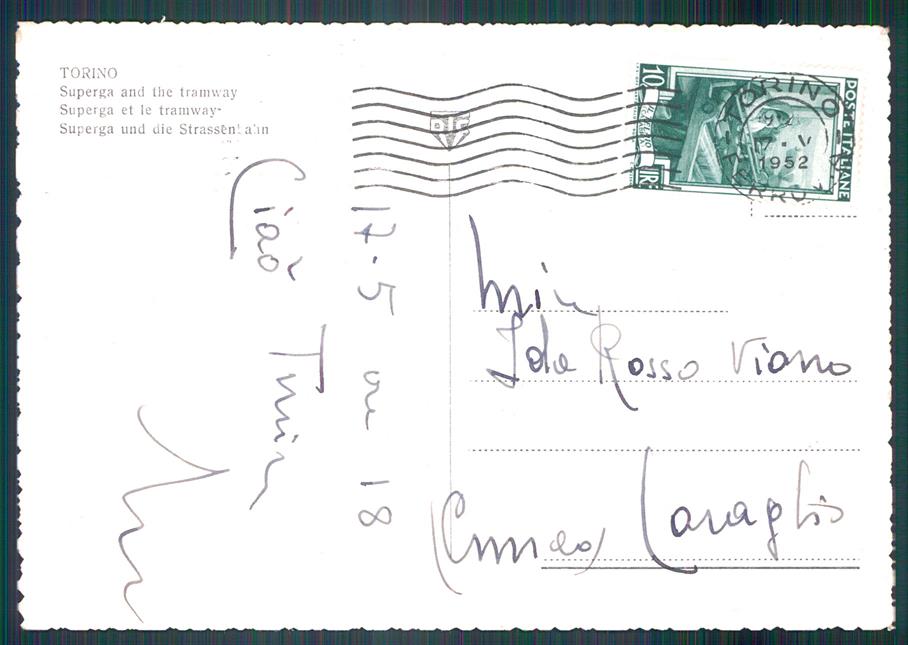 TORINO
Superga and the tramway
Superga et le tramway
Superga und die Strassenbahn
17-5 ore 18
Ciao
10
LIRE
POSTE ITALIANE
TORINO
1952
Ida Rosso Viano
Caraglio
(Cuneo)